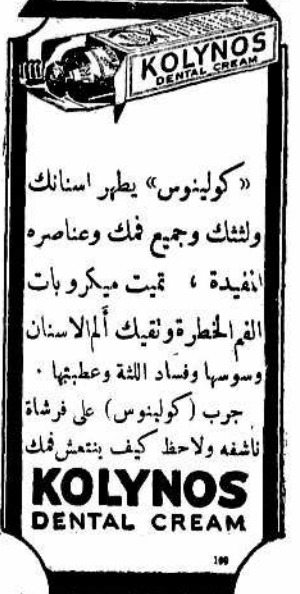 KOLYNOS
DENTAL CREAM
«كولينوس» يطهر اسنانك
ولثتك وجميع فمك وعناصره
المفيدة ، تميت ميكروبات
الفم الخطرة وتقيك ألم الاسنان
وسوسها وفساد اللثة وعطبتها ٠
جرب (كولينوس) على فرشاة
ناشفه ولاحظ كيف ينتعش فمك
KOLYNOS
DENTAL CREAM